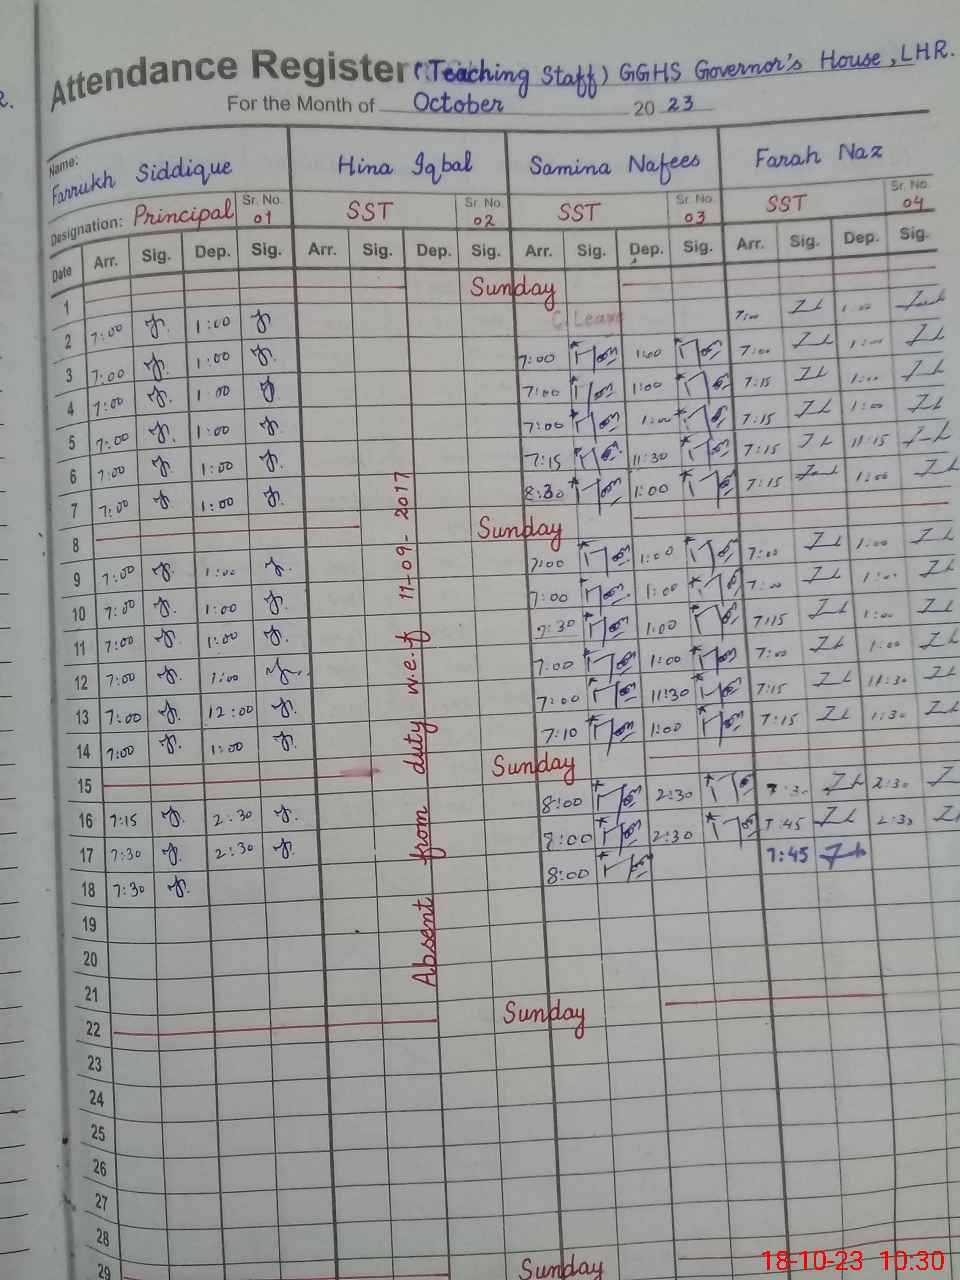 Attendance Register (Teaching Staff) GGHS Governor's House, LHR.
For the Month of October 2023
Name: Farrukh Siddique Hina Iqbal Samina Nafees Farah Naz
Designation: Principal Sr. No. 01 SST Sr. No. 02 SST Sr. No. 03 SST Sr. No. 04
Date Arr. Sig. Dep. Sig. Arr. Sig. Dep. Sig. Arr. Sig. Dep. Sig. Arr. Sig. Dep. Sig.
1 Sunday
2 7:00 1:00 C. Leave 7:00 1:00
3 7:00 1:00 7:00 1:00 7:00 1:00
4 7:00 1:00 7:00 1:00 7:15 1:00
5 7:00 1:00 7:00 1:00 7:15 1:00
6 7:00 1:00 7:15 11:30 7:15 11:15
7 7:00 1:00 8:30 1:00 7:15 1:00
8 Sunday
9 7:00 1:00 7:00 1:00 7:00 1:00
10 7:00 1:00 7:00 1:00 7:00 1:00
11 7:00 1:00 7:30 1:00 7:15 1:00
12 7:00 1:00 7:00 1:00 7:00 1:00
13 7:00 12:00 7:00 11:30 7:15 11:30
14 7:00 1:00 7:10 1:00 7:15 1:30
15 Sunday
16 7:15 2:30 8:00 2:30 7:30 2:30
17 7:30 2:30 8:00 2:30 7:45 2:30
18 7:30 8:00 7:45
19
20
21
22 Sunday
23
24
25
26
27
28
29 Sunday
Absent from duty w.e.f 11-09-2017
18-10-23 10:30